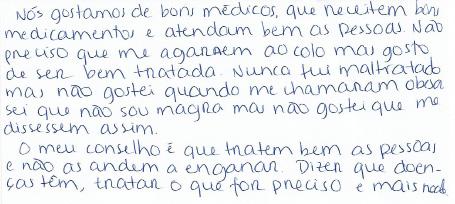 Nós gostamos de bons médicos, que receitem bons
medicamentos e atendam bem as pessoas. Não
preciso que me agarrem ao colo mas gosto
de ser bem tratada. Nunca fui maltratada
mas não gostei quando me chamaram obesa
sei que não sou magra mas não gostei que me
dissessem assim.
O meu conselho é que tratem bem as pessoas
e não as andem a enganar. Dizer que doen-
ças têm, tratar o que for preciso e mais nada.